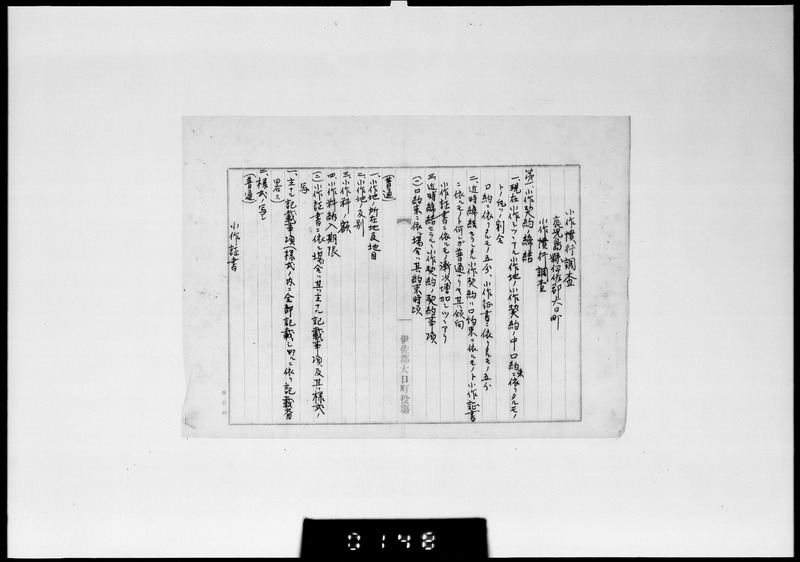 小作慣行調査
鹿児島縣伊佐郡大口町
小作慣行調査
第一 小作契約ノ締結
一、現在小作シツヽアル小作地ノ小作契約ノ中口約束ニ依リタルモノ
ト、作ノ割合
口約ニ依リタルモノ五分、小作証書ニ依リタルモノ五分
二、近時締結セラレタル小作契約ハ口約束ニ依ルモノト小作証書
ニ依ルモノト何レガ普通ナリヤ其傾向
小作証書ニ依ルモノ漸次増加シツヽアリ
三、近時締結セラレタル小作契約ノ契約事項
(一)口約束ニ依ル場合ハ其約束時項
(普通)
一、小作地ノ所在地及地目
二、小作地ノ反別
三、小作料ノ額
四、小作料納入期限
(二)小作証書ニ依ル場合ハ其主ナル記載事項及其様式ノ
写
一、主ナル記載事項(様式ノ内ニ全部記載シアルニ依リ記載省
略ス)
二、様式ノ写シ
(普通)
小作証書
伊佐郡大口町役場
0148